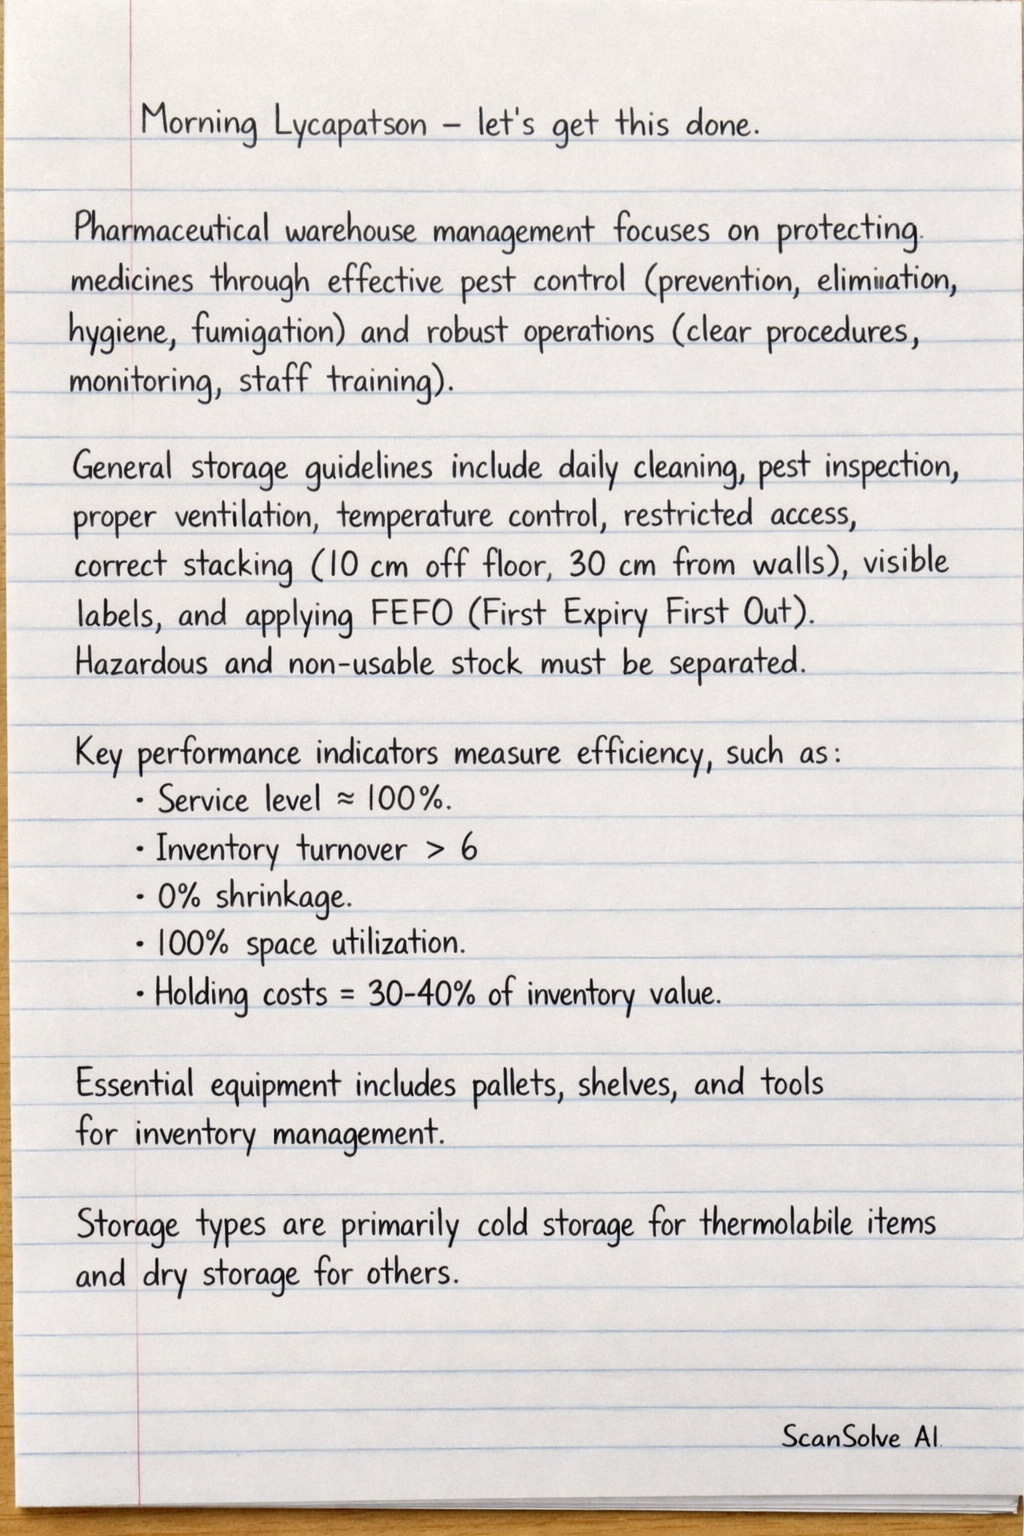 Morning Lycapatson – let's get this done.
Pharmaceutical warehouse management focuses on protecting.
medicines through effective pest control (prevention, elimiiation,
hygiene, fumigation) and robust operations (clear procedures,
monitoring, staff training).
General storage guidelines include daily cleaning, pest inspection,
proper ventilation, temperature control, restricted access,
correct stacking (10 cm off floor, 30 cm from walls), visible
labels, and applying FEFO (First Expiry First Out).
Hazardous and non-usable stock must be separated.
Key performance indicators measure efficiency, such as:
· Service level ≈ 100%.
· Inventory turnover > 6
· 0% shrinkage.
· 100% space utilization.
· Holding costs = 30-40% of inventory value.
Essential equipment includes pallets, shelves, and tools
for inventory management.
Storage types are primarily cold storage for thermolabile items
and dry storage for others.
ScanSolve AI.